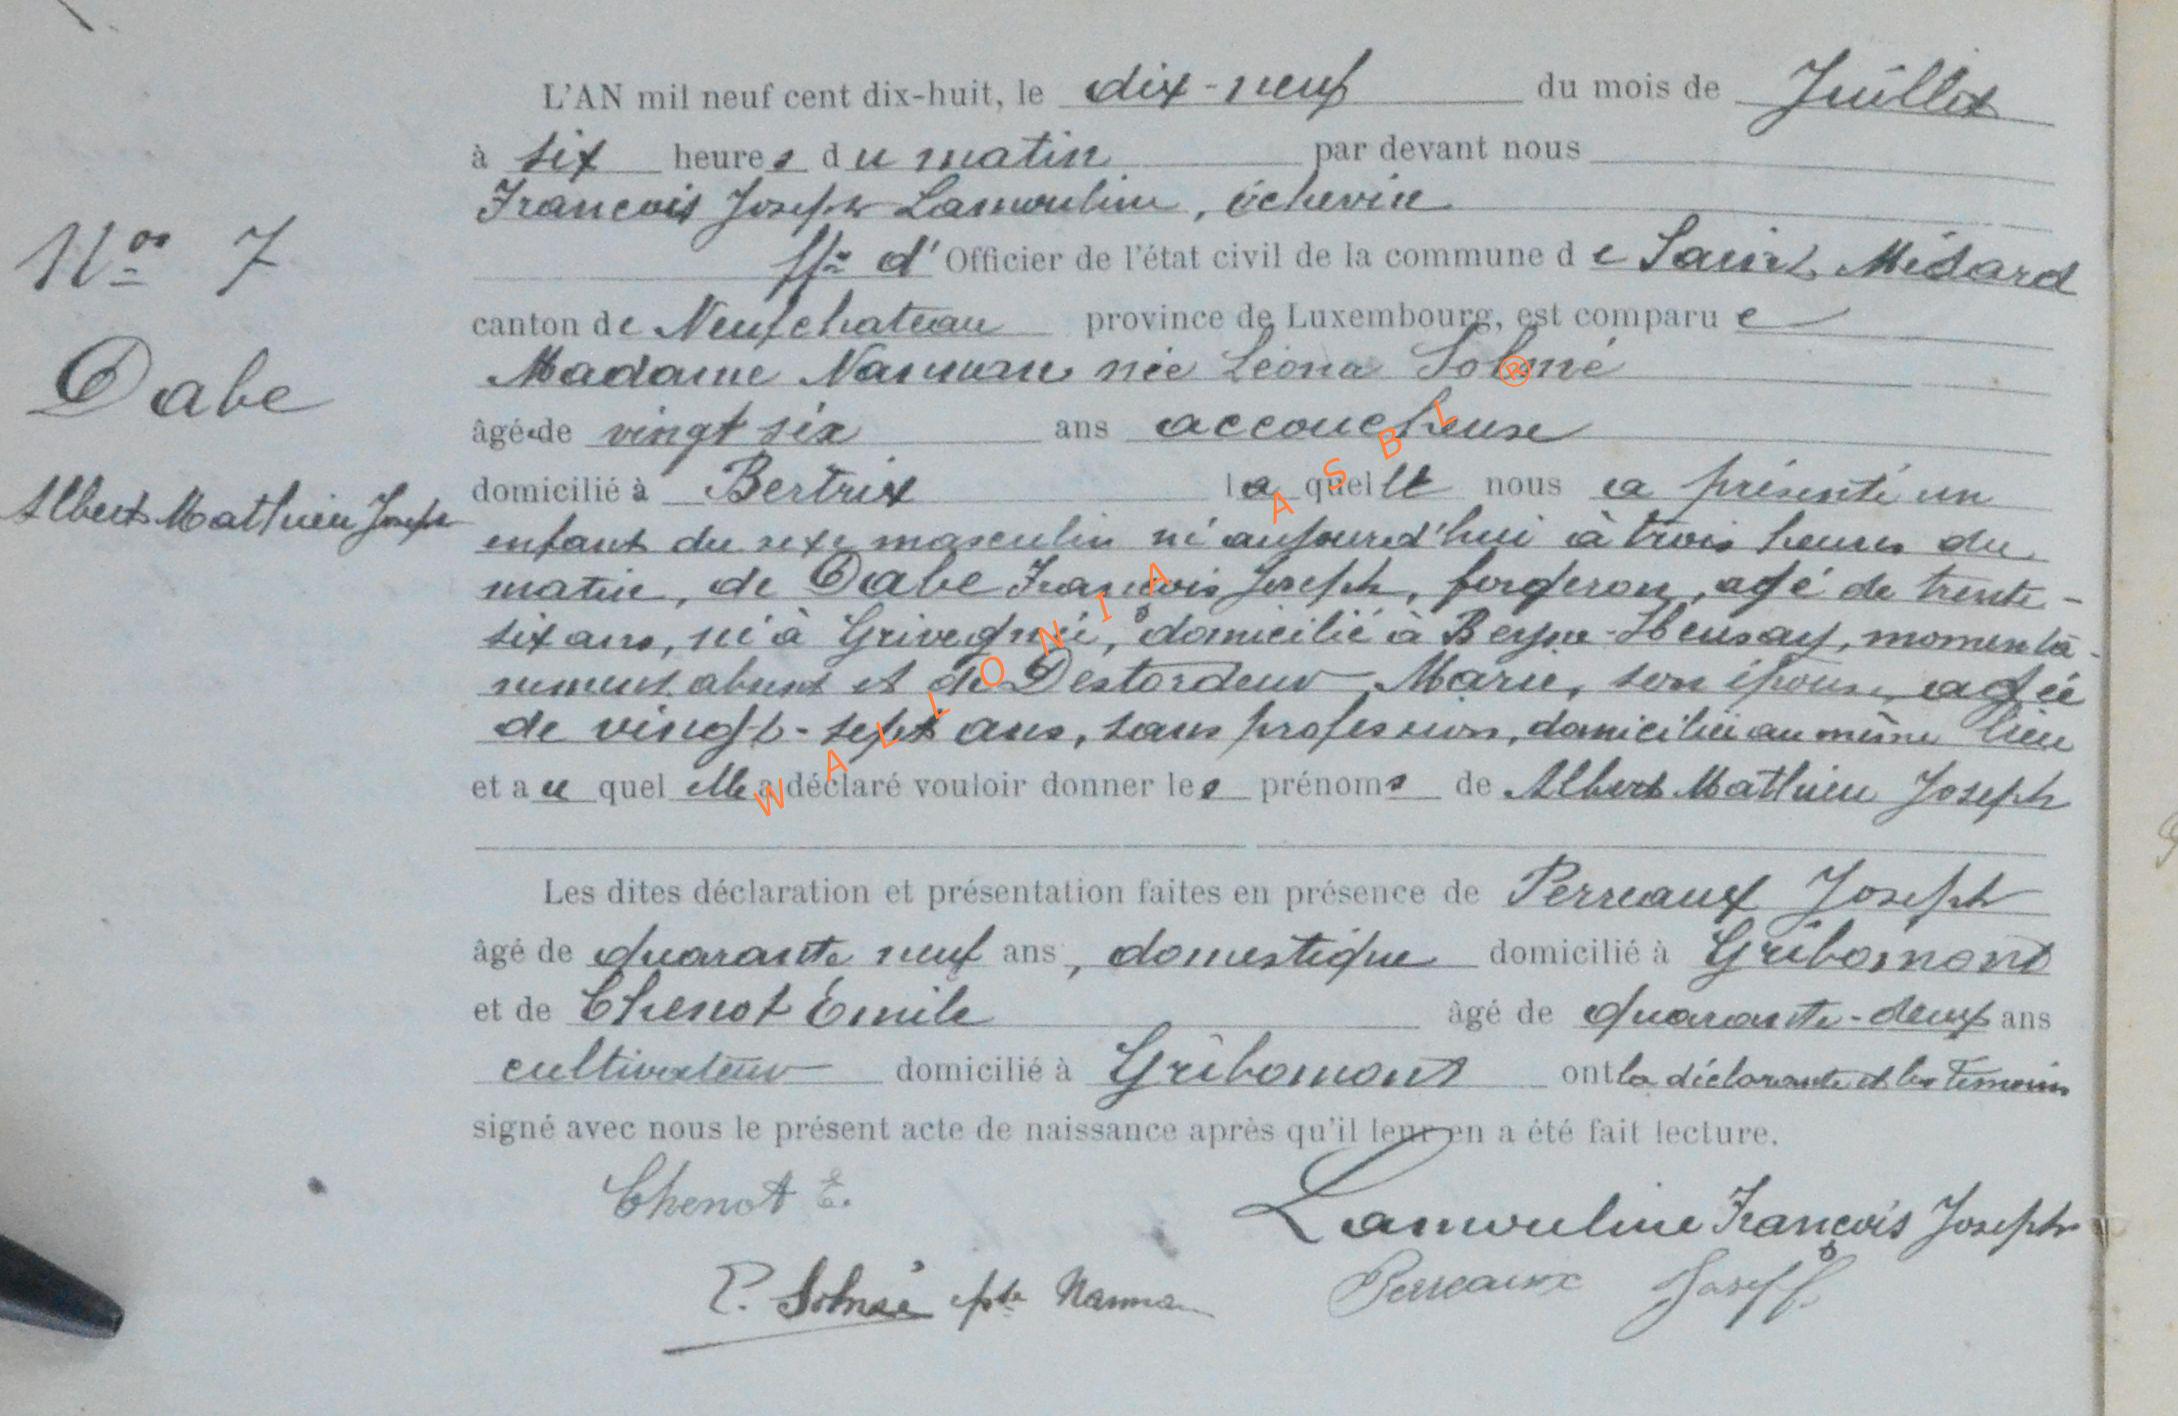 L'AN mil neuf cent dix-huit, le dix-neuf du mois de Juillet
à six heures du matin par devant nous
François Joseph Lamouline, échevin
ff.ns d'Officier de l'état civil de la commune de Saint Médard
canton de Neufchateau province de Luxembourg, est comparue
Madame Nannan née Léona Solmé
âgée de vingt six ans accoucheuse
domicilié à Bertrix laquelle nous a présenté un
enfant du sexe masculin né aujourd'hui à trois heures du
matin, de Dabe François Joseph, forgeron, agé de trente-
six ans, né à Grivegnée, domicilié à Beyne-Heusay, momenta-
nement absent et de Destordeur Marie, son épouse, agée
de vingt-sept ans, sans profession, domiciliée au même lieu
et auquel elle a déclaré vouloir donner les prénoms de Albert Mathieu Joseph
Les dites déclaration et présentation faites en présence de Perreaux Joseph
âgé de quarante neuf ans, domestique domicilié à Gribomont
et de Chenot Emile âgé de quarante-deux ans
cultivateur domicilié à Gribomont ont la déclarante et les témoins
signé avec nous le présent acte de naissance après qu'il leur en a été fait lecture.
Chenot E.
Lamouline François Joseph
Solmé Nannan
Perreaux Joseph
Nos 7
Dabe
Albert Mathieu Joseph
WALLONIA ASBL ®